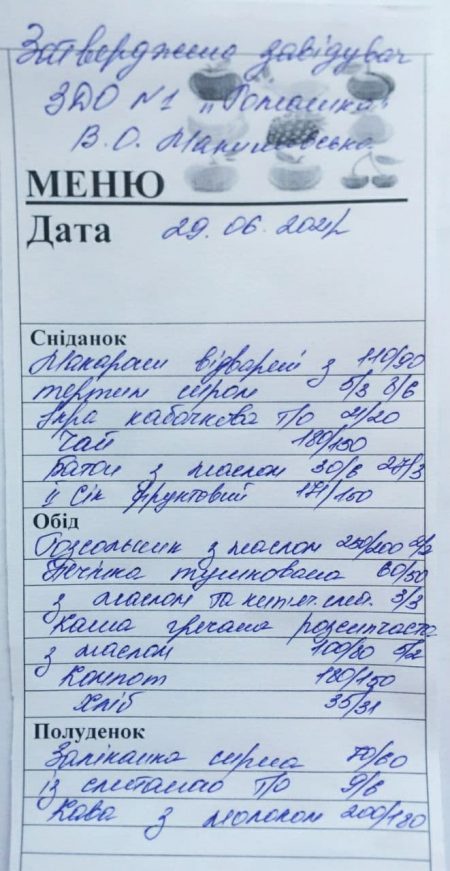 Затверджено завідувач
ЗДО №1 „Ромашка"
В.О.
МЕНЮ
Дата 29.06.2021р
Сніданок
Макарони відварені з 110/90
тертим сиром 5/3 8/6
Ікра кабачкова т/о 21/20
Чай 180/150
Батон з маслом 30/6 27/3
ІІ Сік фруктовий 171/150
Обід
Розсольник з маслом 250/200 2/2
Печінка тушкована 60/50
з маслом та 3/3
Каша гречана розсипчаста
з маслом 100/80 5/2
Компот 180/150
Хліб 35/31
Полуденок
Запіканка сирна 70/60
із сметаною т/о 9/6
Кава з молоком 200/180